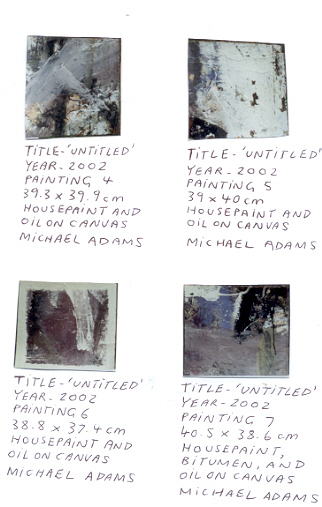 TITLE-'UNTITLED'
YEAR-2002
PAINTING 4
39.3 x 39.9 cm
HOUSEPAINT AND
OIL ON CANVAS
MICHAEL ADAMS
TITLE-'UNTITLED'
YEAR-2002
PAINTING 5
39 x 40 cm
HOUSEPAINT AND
OIL ON CANVAS
MICHAEL ADAMS
TITLE-'UNTITLED'
YEAR-2002
PAINTING 6
38.8 x 37.4 cm
HOUSEPAINT AND
OIL ON CANVAS
MICHAEL ADAMS
TITLE-'UNTITLED'
YEAR-2002
PAINTING 7
40.5 x 38.6 cm
HOUSEPAINT,
BITUMEN, AND
OIL ON CANVAS
MICHAEL ADAMS